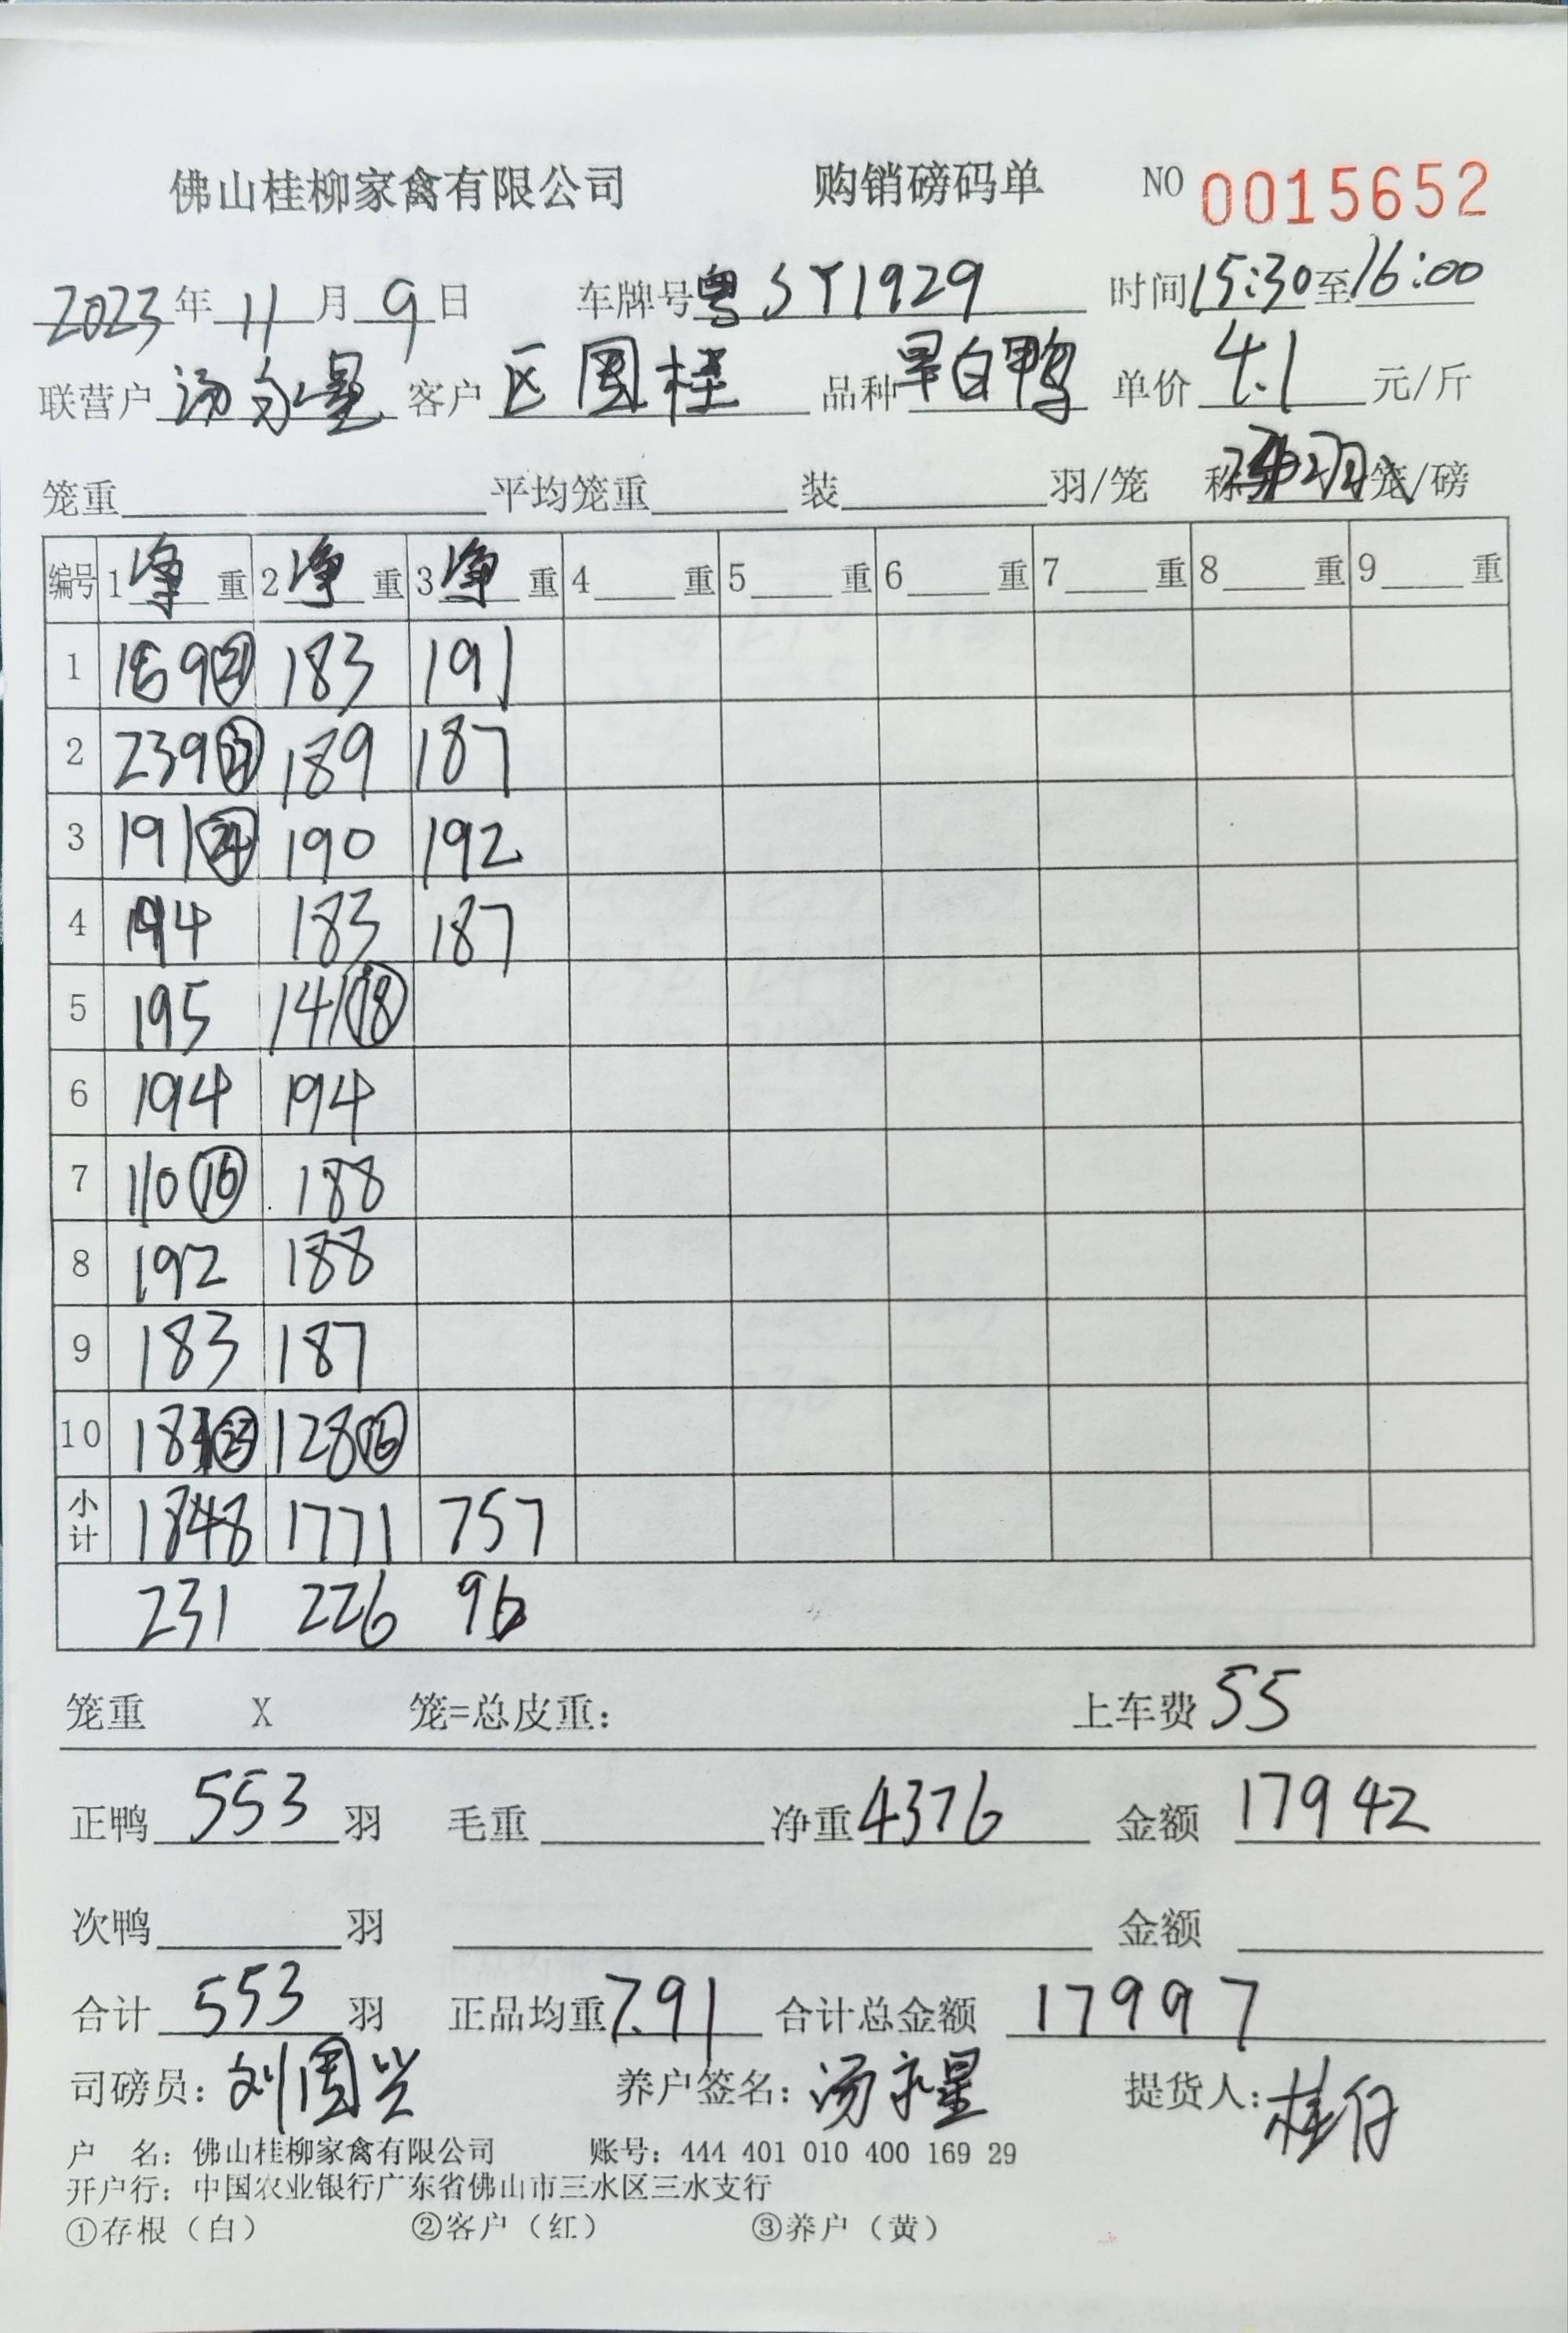 佛山桂柳家禽有限公司 购销磅码单 NO 0015652
2023年11月9日 车牌号粤SY1929 时间15:30至16:00
联营户汤永星 客户区国桂 品种旱白鸭 单价4.1元/斤
笼重 平均笼重 装 羽/笼 称 笼/磅
编号 1净重 2净重 3净重 4重 5重 6重 7重 8重 9重
1 169㉑ 183 191
2 239 189 187
3 191㉔ 190 192
4 194 183 187
5 195 141⑱
6 194 194
7 110⑯ 188
8 192 188
9 183 187
10 18 128⑯
小计 1848 1771 757
231 226 96
笼重 X 笼=总皮重: 上车费55
正鸭553羽 毛重 净重4376 金额17942
次鸭 羽 金额
合计553羽 正品均重7.91 合计总金额17997
司磅员:刘国兴 养户签名:汤永星 提货人:桂仔
户 名:佛山桂柳家禽有限公司 账号:444 401 010 400 169 29
开户行:中国农业银行广东省佛山市三水区三水支行
①存根(白) ②客户(红) ③养户(黄)